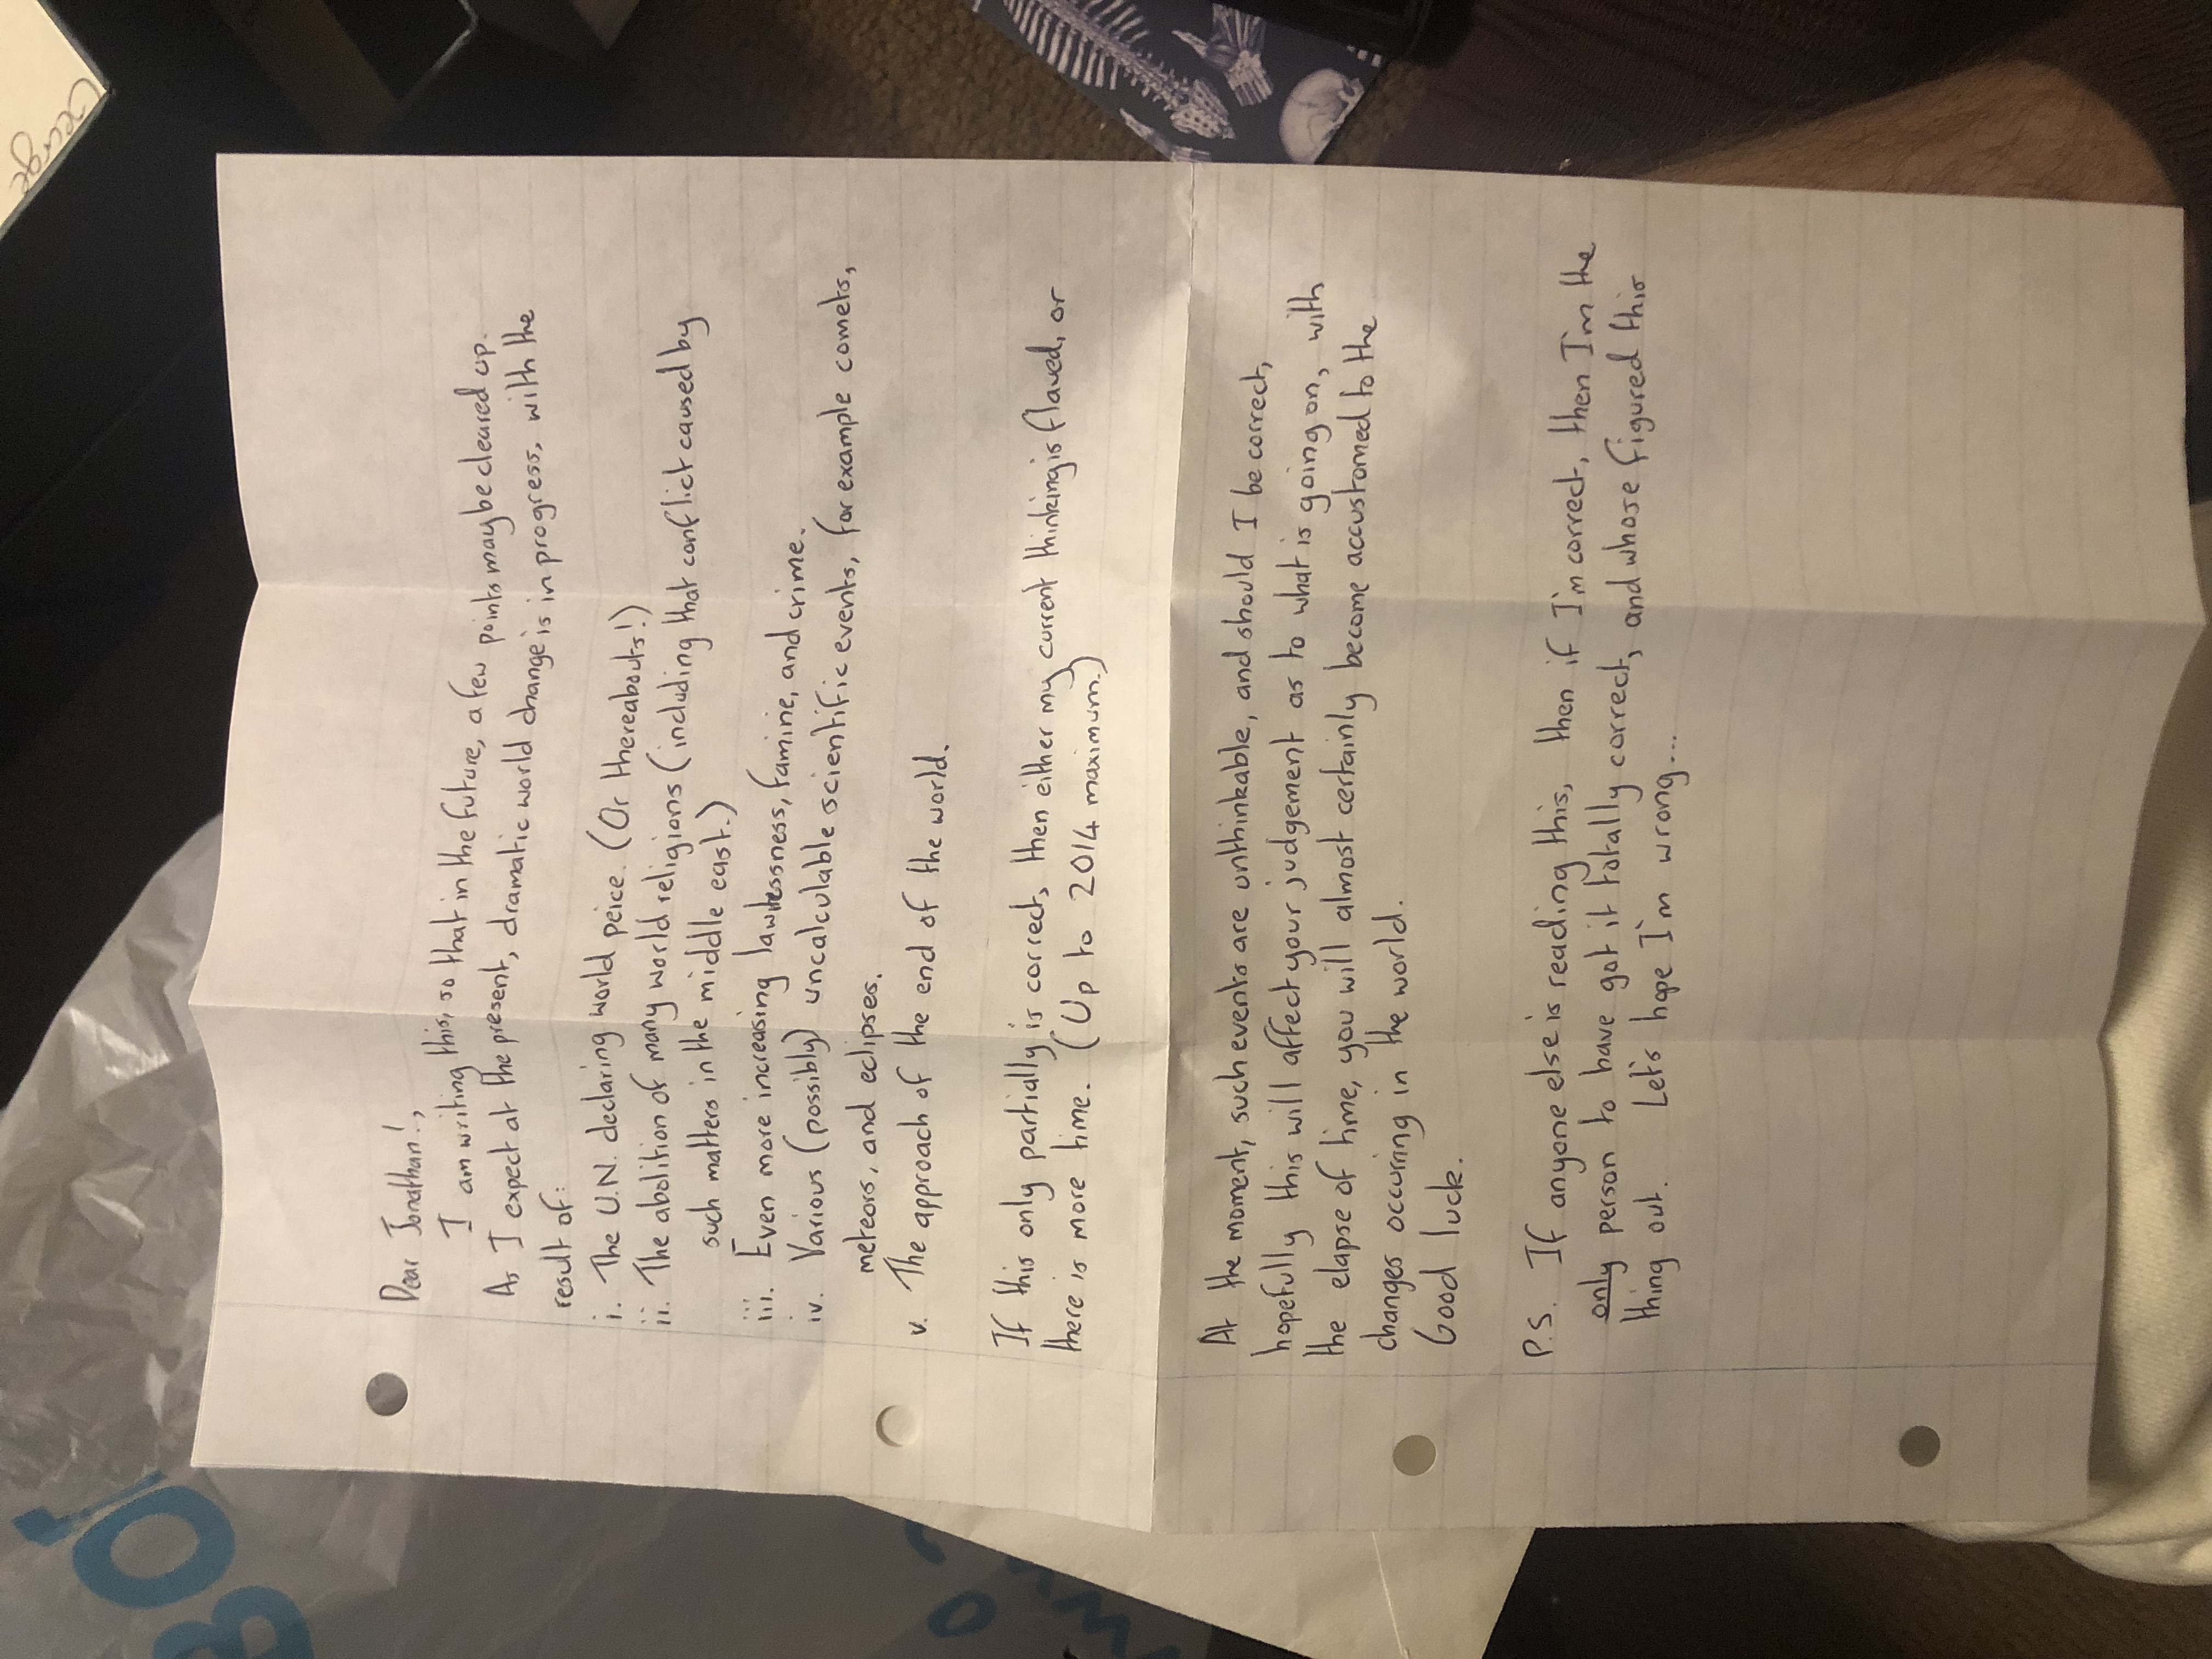 Dear Jonathan!,
I am writing this, so that in the future, a few points may be cleared up.
As I expect at the present, dramatic world change is in progress, with the
result of:
i. The U.N. declaring world peice. (Or thereabouts!)
ii. The abolition of many world religions (including that conflict caused by
such matters in the middle east.)
iii. Even more increasing lawlessness, famine, and crime.
iv. Various (possibly) uncalculable scientific events, for example comets,
meteors, and eclipses.
v. The approach of the end of the world.
If this only partially is correct, then either my current thinking is flawed, or
there is more time. (Up to 2014 maximum.)
At the moment, such events are unthinkable, and should I be correct,
hopefully this will affect your judgement as to what is going on, with
the elapse of time, you will almost certainly become accustomed to the
changes occuring in the world.
Good luck.
P.S. If anyone else is reading this, then if I'm correct, then I'm the
only person to have got it totally correct, and whose figured this
thing out. Let's hope I'm wrong...
George